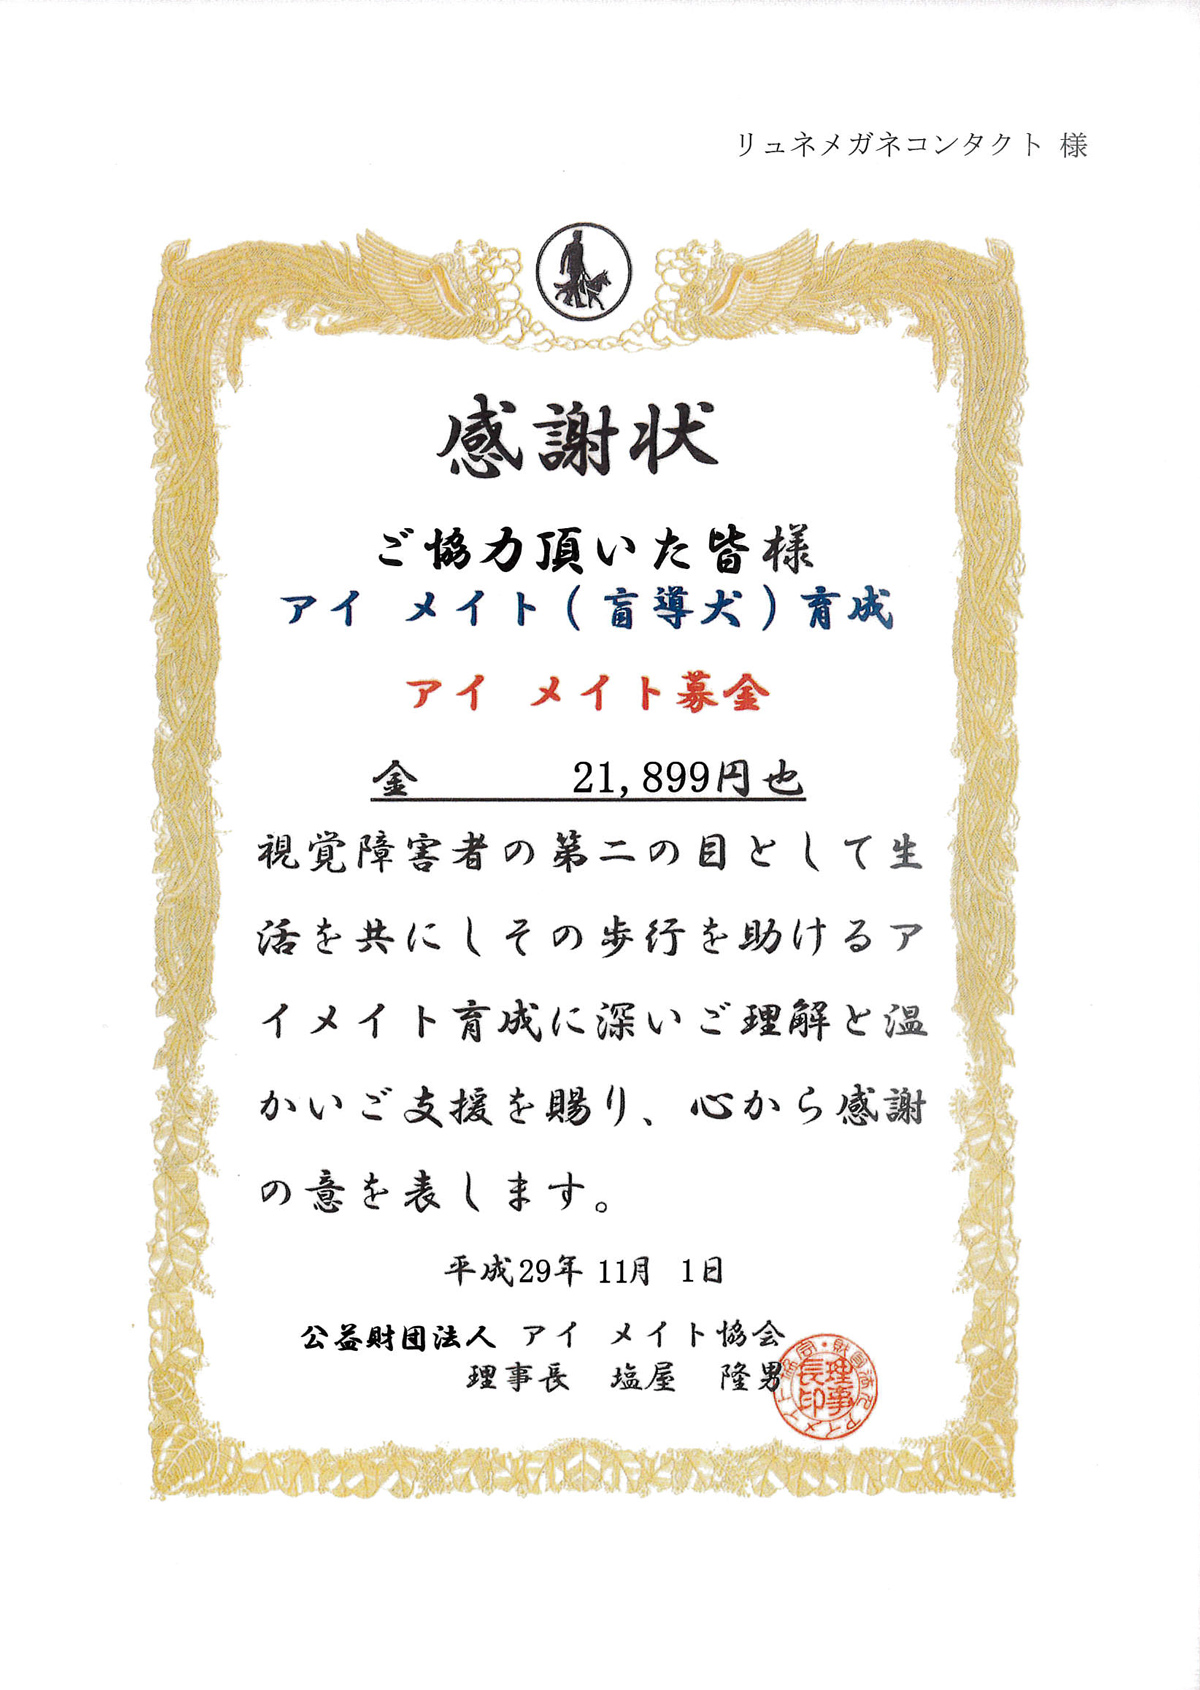 リュネメガネコンタクト 様
感謝状
ご協力頂いた皆様
アイ メイト(盲導犬)育成
アイ メイト募金
金 21,899円也
視覚障害者の第二の目として生
活を共にしその歩行を助けるア
イメイト育成に深いご理解と温
かいご支援を賜り、心から感謝
の意を表します。
平成29年 11月 1日
公益財団法人 アイ メイト協会
理事長 塩屋 隆男
理事長印